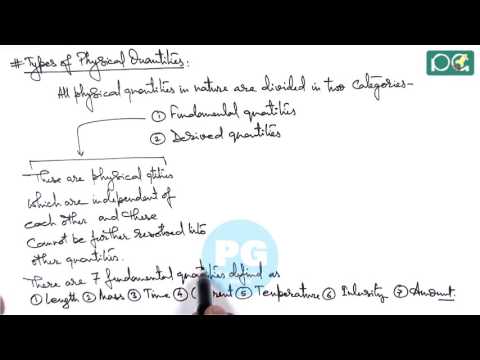 # Types of Physical Quantities:
All physical quantities in nature are divided in two categories-
① Fundamental quantities
② Derived quantities
These are physical qtities
which are independent of
each other and these
cannot be further resolved into
other quantities.
There are 7 fundamental quantities defind as
① Length ② Mass ③ Time ④ ⑤ Temperature ⑥ Intensity ⑦ Amount.
PG